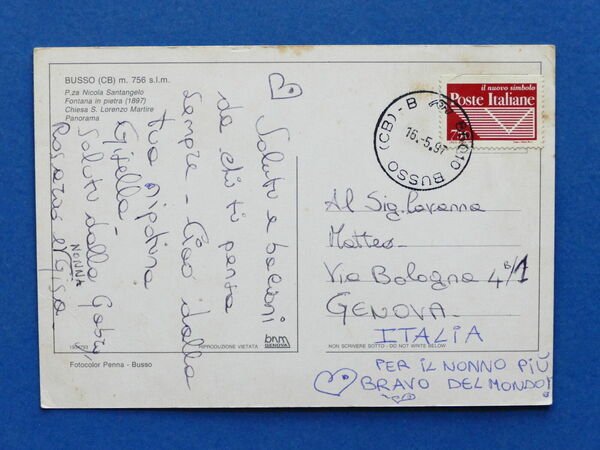 BUSSO (CB) m. 756 s.l.m.
P.za Nicola Santangelo
Fontana in pietra (1897)
Chiesa S. Lorenzo Martire
Panorama
Saluti e bacioni
da chi ti pensa
sempre - Ciao dalla
tua nipotina
Gisella -
Saluti dalla Gaby,
NONNA
Rosaria e Gisa -
Fotocolor Penna - Busso
RIPRODUZIONE VIETATA
bnm
GENOVA
NON SCRIVERE SOTTO - DO NOT WRITE BELOW
86010 BUSSO (CB) - B
16.-5.97
il nuovo simbolo
Poste Italiane
Al Sig. Cavanna
Matteo
Via Bologna 4B/1
GENOVA
ITALIA
PER IL NONNO PIÙ
BRAVO DEL MONDO!